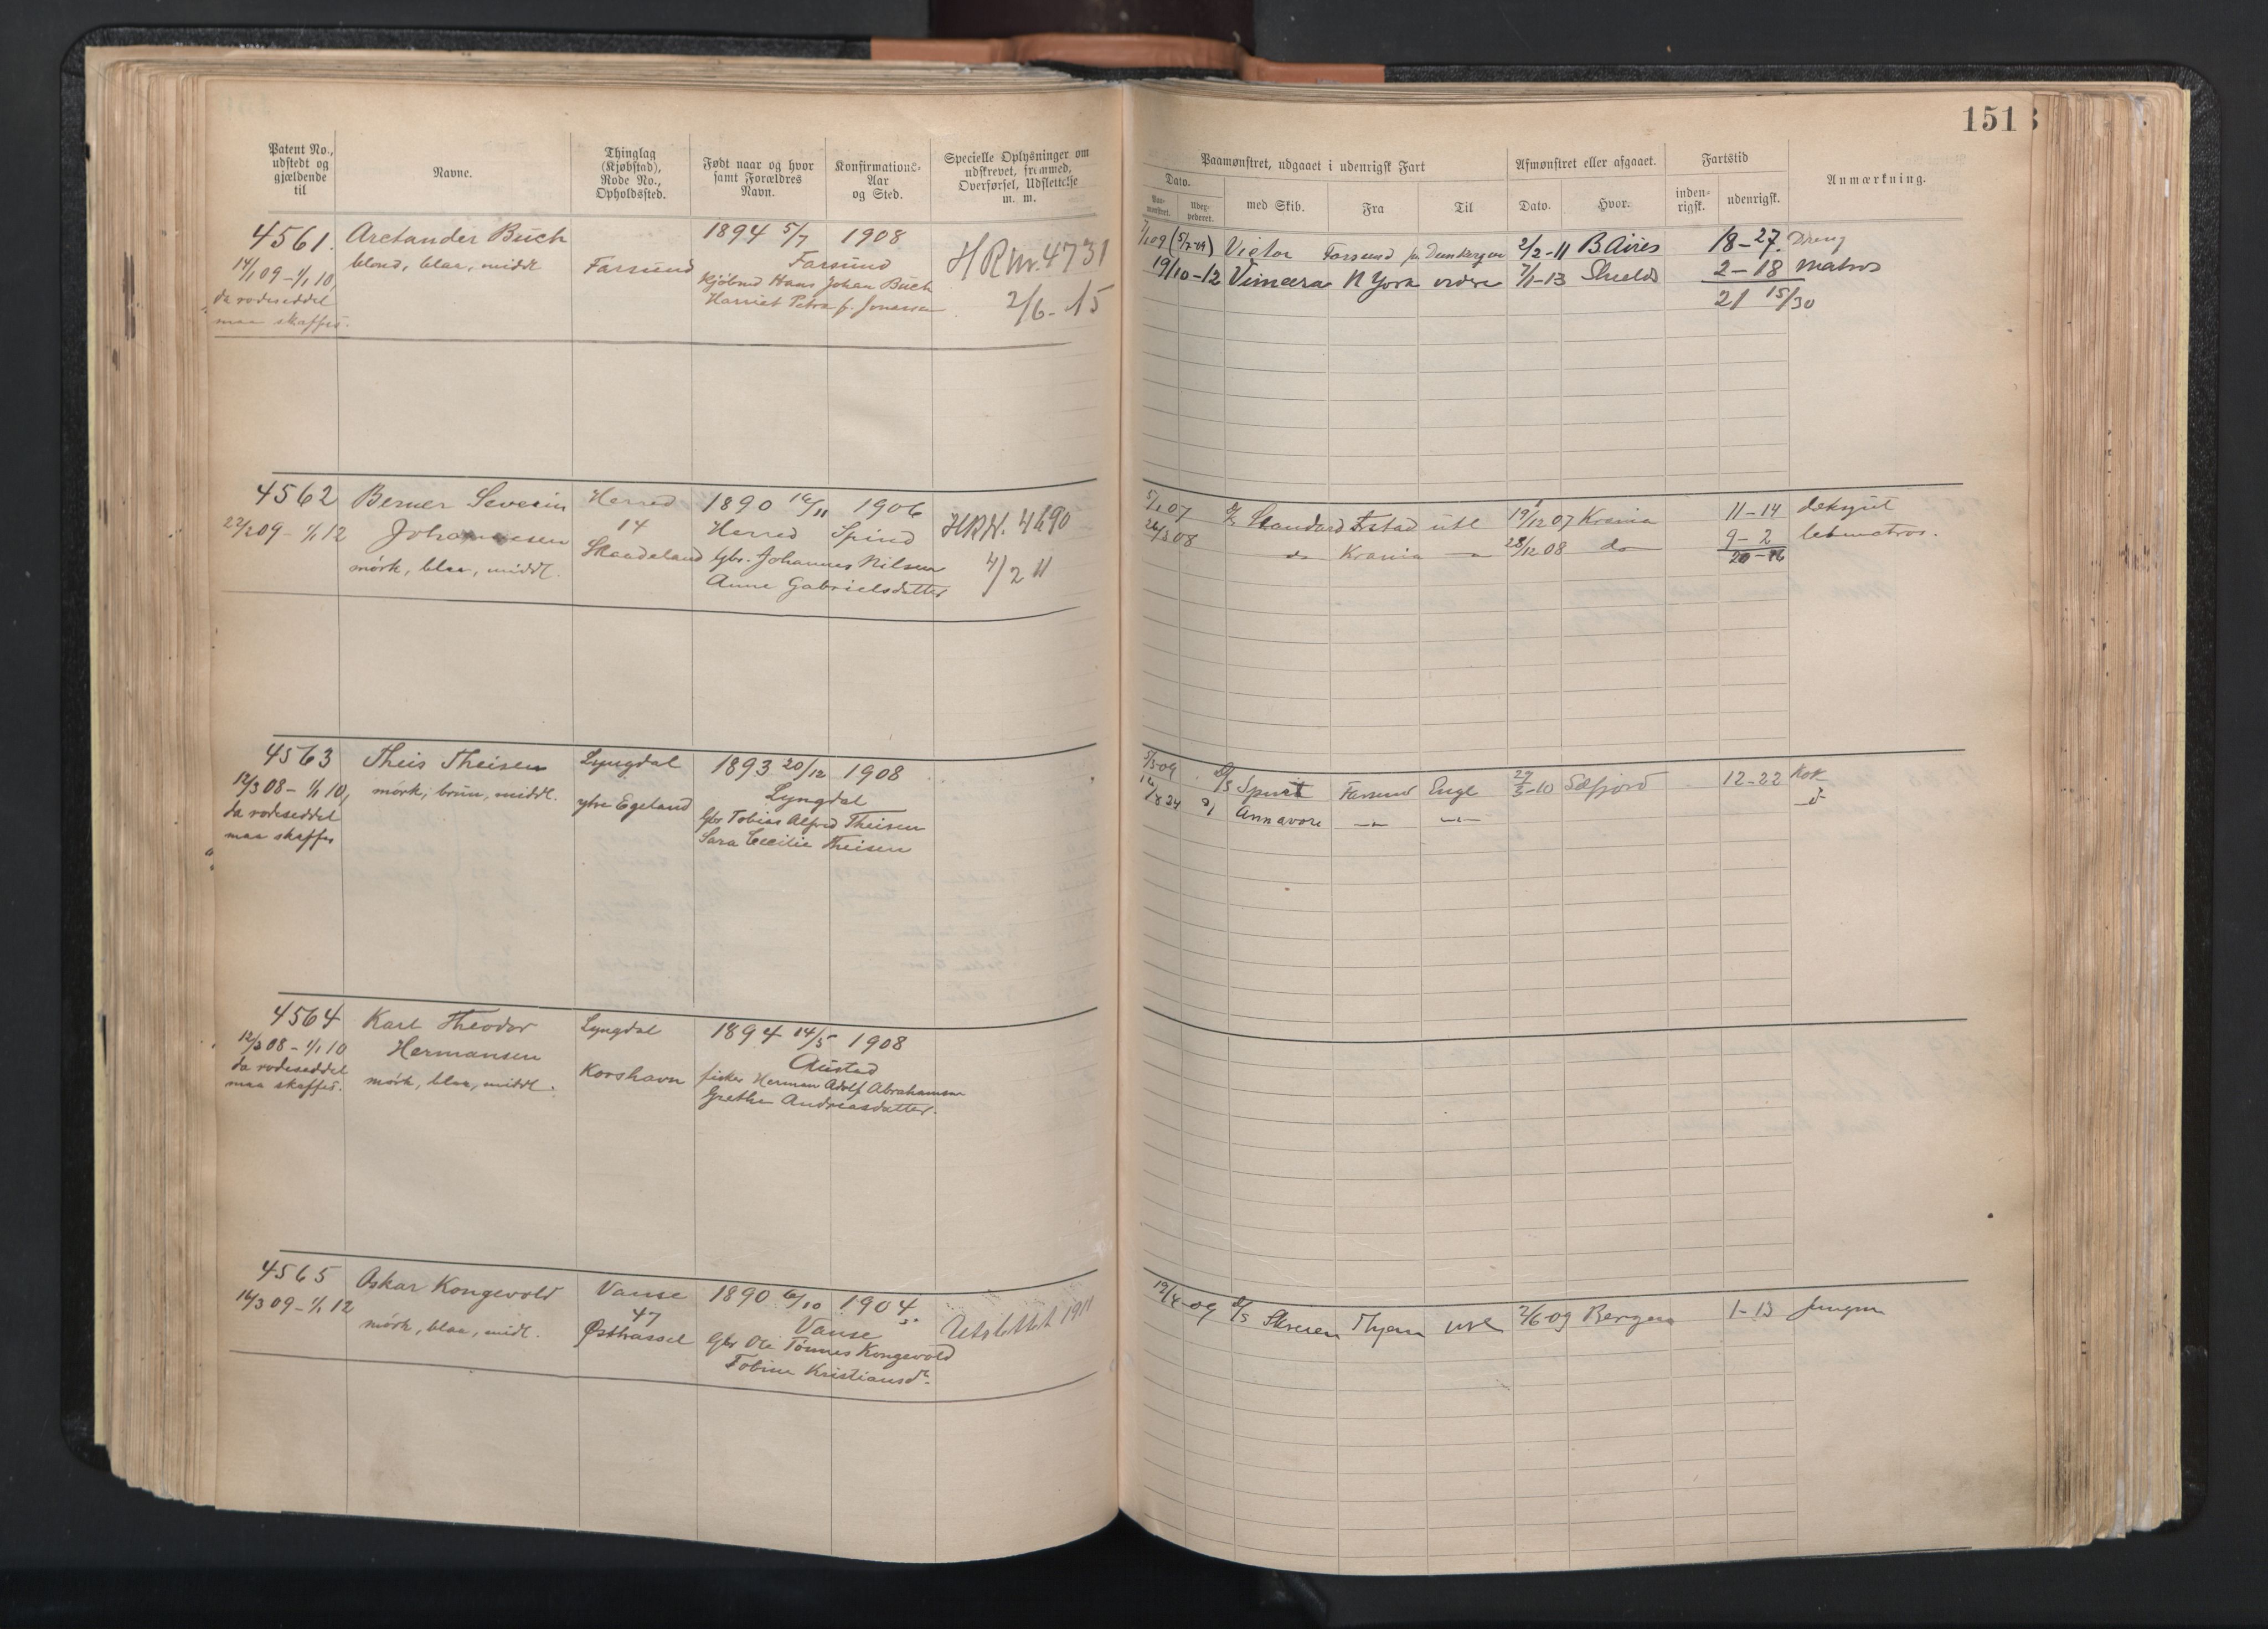 151
Patent No., udstedt og gjældende til
Navne.
Thinglag (Kjøbstad), Rode No., Opholdssted.
Født naar og hvor samt Forældres Navn.
Konfirmations-Aar og Sted.
Specielle Oplysninger om udskrevet, frømmed, Overførsel, Udslettelse m. m.
Paamønstret, udgaaet i udenrigsk Fart
Dato.
Paa-mønstret.
Uder-pederet.
med Skib.
Fra
Til
Afmønstret eller afgaaet.
Dato.
Hvor.
Fartstid
inden-rigsk.
udenrigsk.
Anmærkning.
4561.
14/1 09 – 1/1 10,
da rodeseddel
maa skaffes.
Arctander Buch
blond, blaa, middl
Farsund
1894 5/7 1908
Farsund
Kjøbmd Hans Johan Buch
Harriet Petra f. Jonassen
HR Nr. 4731
2/6-15
7/1 09 (5/7-09) Victor Farsund Dunkerque 2/2-11 B Aires 18-27. Dreng
19/10-12 Vimeira N York ordre 7/1-13 Shields 2-18 Matros
21 15/30
4562
22/2 09 – 1/1 12
Berner Severin
Johannesen
mørk, blaa, middl.
Herred
14
Skaadeland
1890 14/11 1906
Herred Spind
Gbr. Johannes Nilsen
Anne Gabrielsdatter
HRN. 4690
4/2 11
5/1 07 Standard Fstad utl 19/12 07 Krania 11-14 dekgut
26/3 08 do Krania 28/12 08 do 9-2 letmatros.
20-16
4563
12/3 08 – 1/1 10,
da rodeseddel
maa skaffes
Theis Theisen
mørk, brun, middl.
Lyngdal
ytre Egeland
1893 20/12 1908
Lyngdal
Gbr Tobias Alfred Theisen
Sara Cecilie Theisen
5/3 09 D/S Spurt Farsund Engl 29/3-10 Sæfjord 12-22 Kok
Annavore
4564
12/3 08 – 1/1 10
da rodeseddel
maa skaffes.
Karl Theodor
Hermansen
mørk, blaa, middl.
Lyngdal
Korshavn
1894 14/5 1908
Austad
fisker Herman Adolf Abrahamsen
Grethe Andreasdatter.
4565
16/3 09 – 1/1 12
Oskar Kongevold
mørk, blaa, midl.
Vanse
47
Østhassel
1890 6/10 1904
Vanse
Gbr Ole Tønnes Kongevold
Tobine Kristiansd.
Utslettet 1911
19/4-09 D/S Skreien utl 2/6 09 Bergen 1-13 Jungm